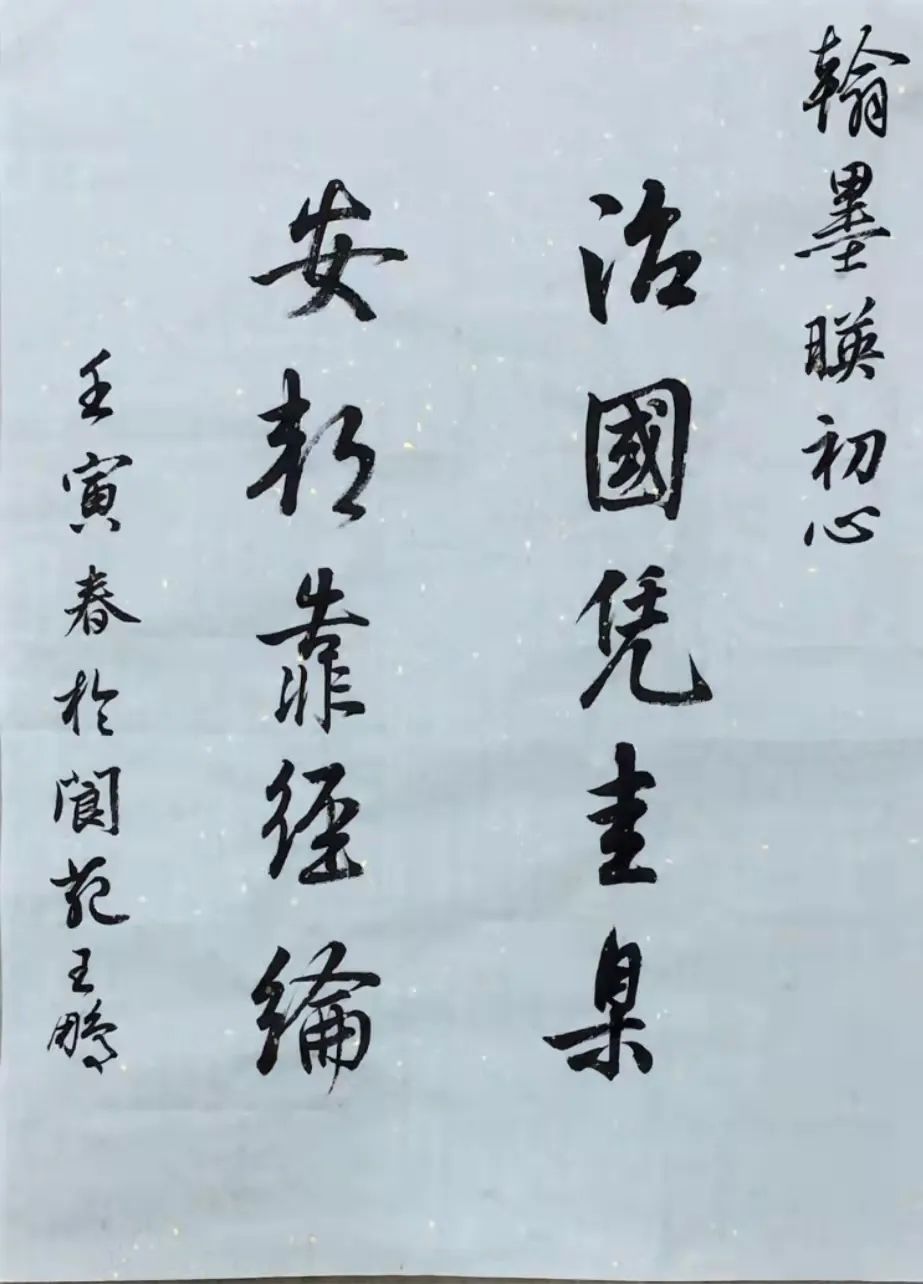 翰墨暎初心
治國凭圭臬
安邦靠經綸
壬寅春於閬苑王鵬